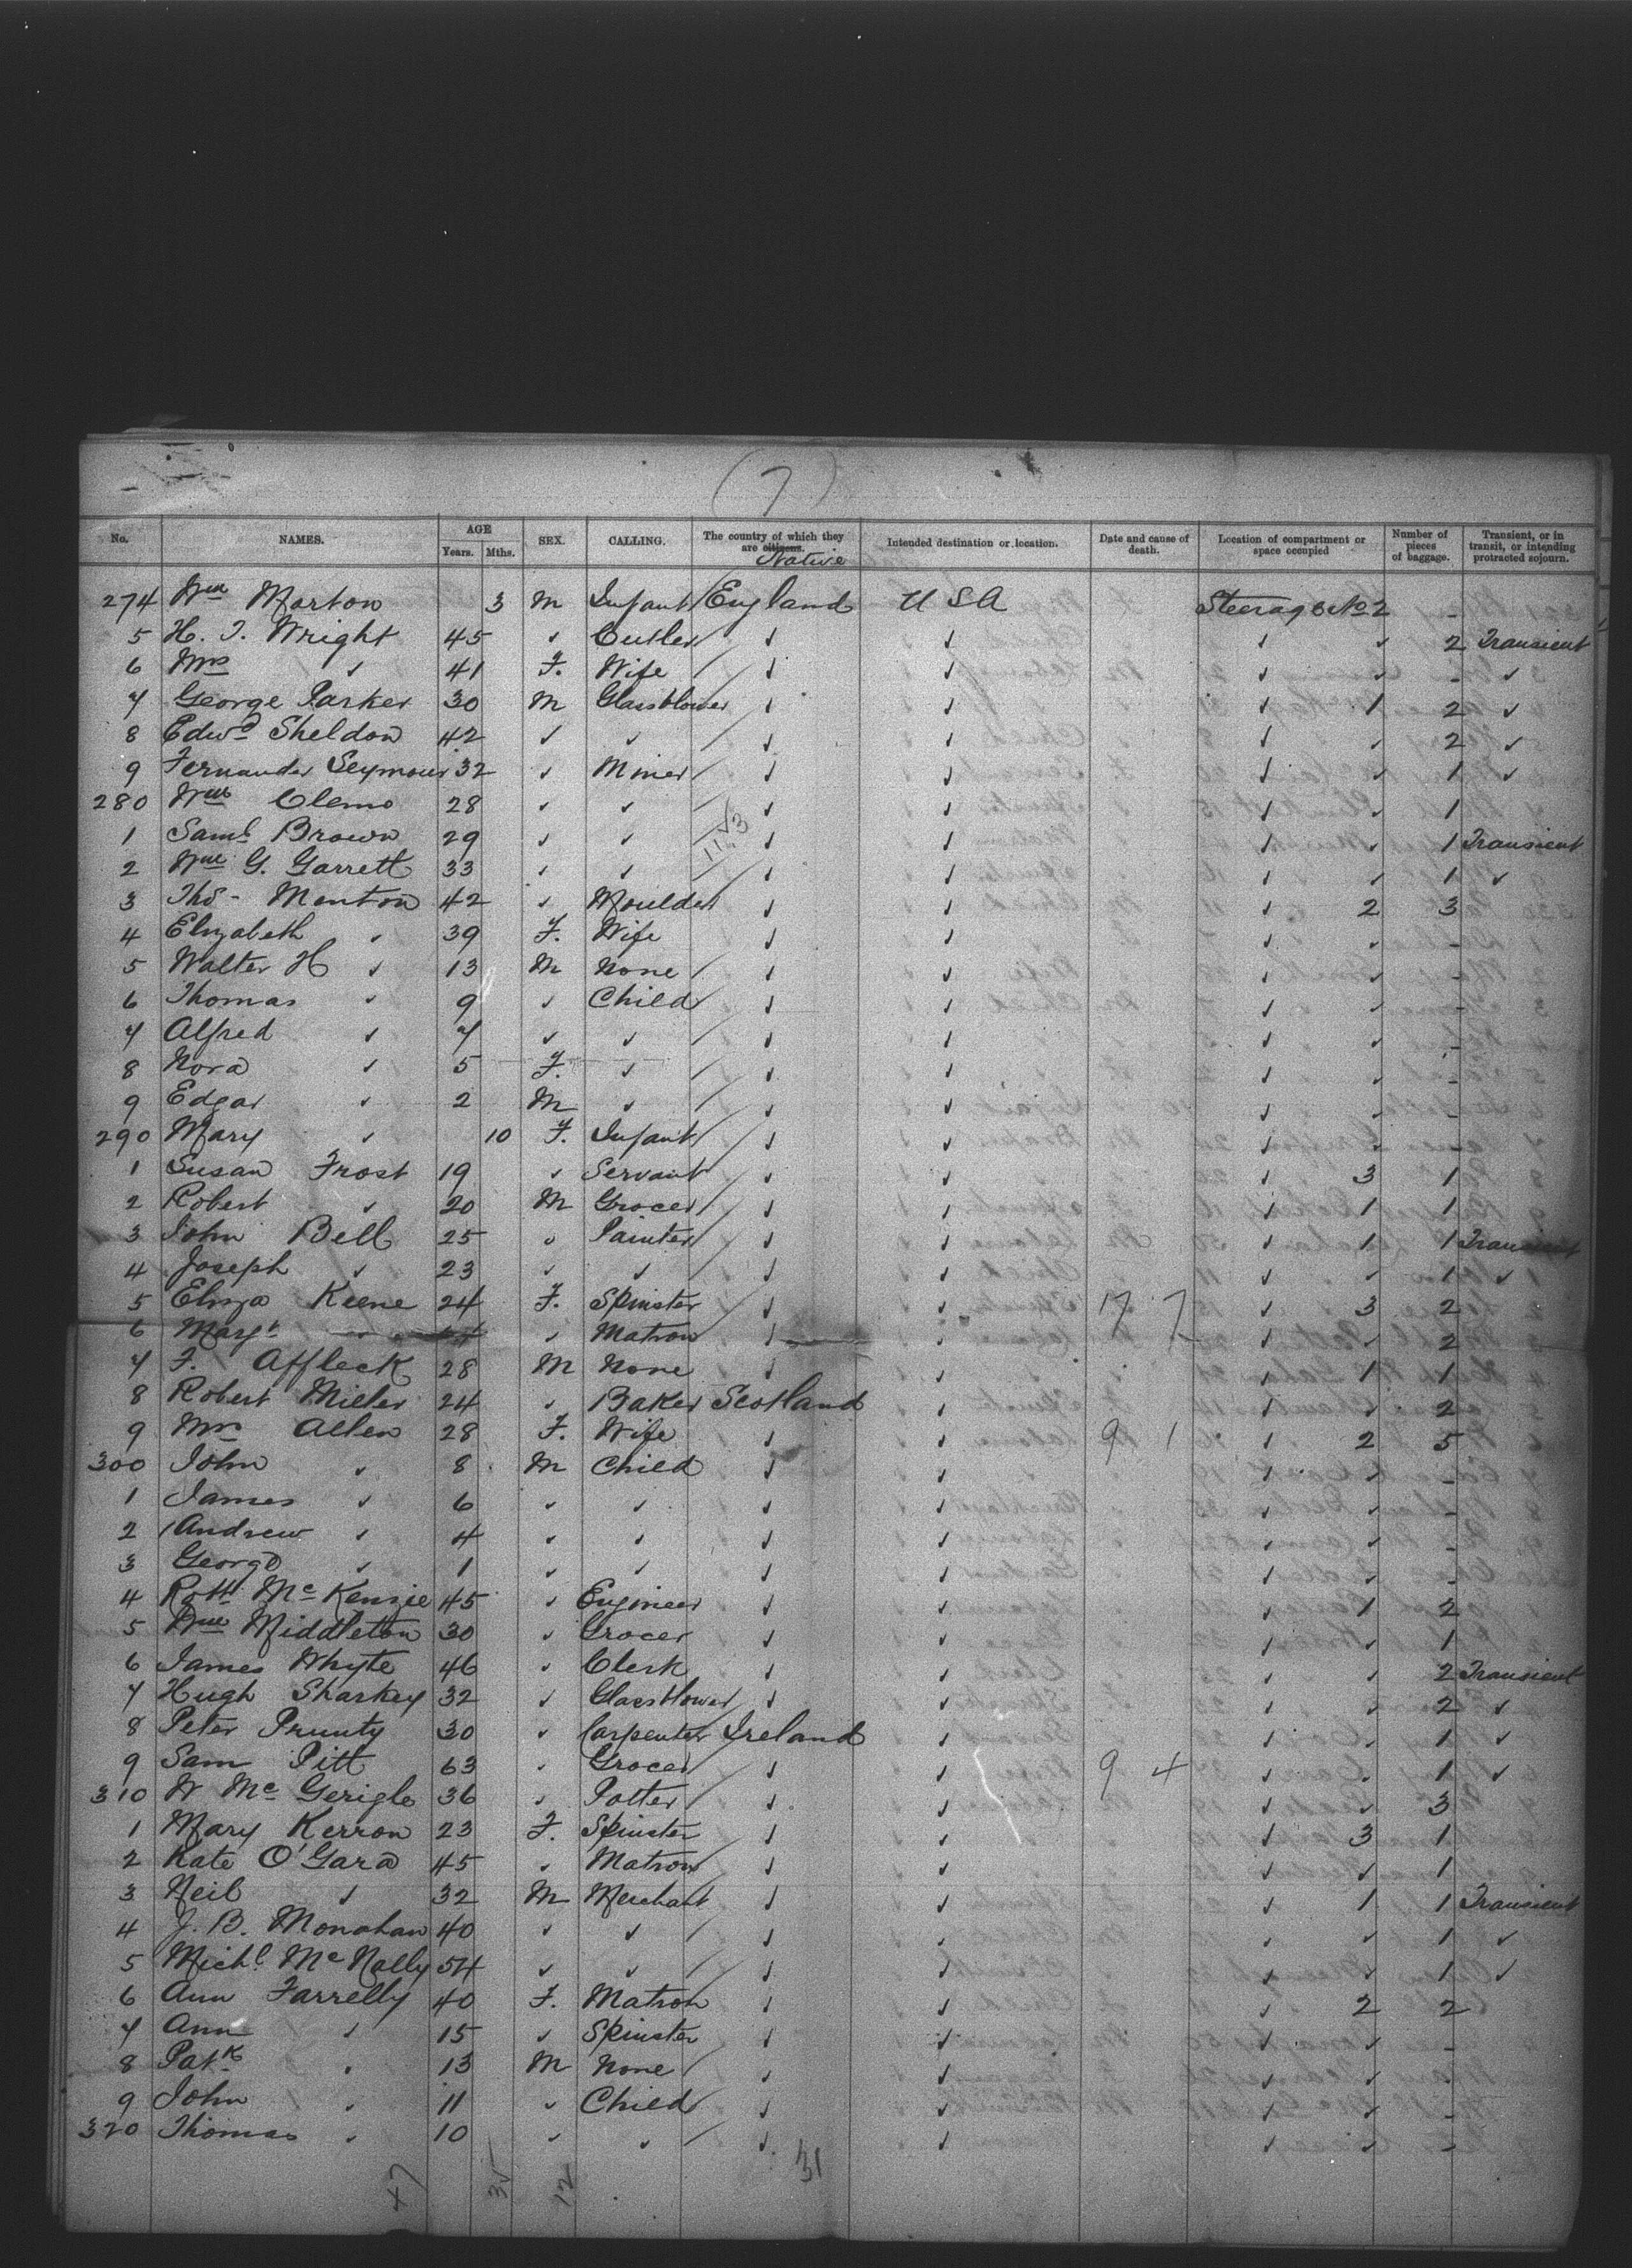 (7)
No. NAMES. AGE Years. Mths. SEX. CALLING. The country of which they are citizens. Native Intended destination or location. Date and cause of death. Location of compartment or space occupied Number of pieces of baggage. Transient, or in transit, or intending protracted sojourn.
274 Wm Morton 3 M Infant England U S A Steerage No 2 -
5 H. J. Wright 45 ✓ Cutler ✓ ✓ ✓ ✓ 2 Transient
6 Mrs ✓ 41 F. Wife ✓ ✓ ✓ ✓ - ✓
7 George Parker 30 M Glassblower ✓ ✓ ✓ 1 2 ✓
8 Edwd Sheldon 42 ✓ ✓ ✓ ✓ ✓ ✓ 2 ✓
9 Fernander Seymour 32 ✓ Miner ✓ ✓ ✓ ✓ 1 ✓
280 Wm Clemo 28 ✓ ✓ ✓ ✓ ✓ ✓ 1
1 Saml Brown 29 ✓ ✓ ✓ ✓ ✓ ✓ 1 Transient
2 Wm G. Garrett 33 ✓ ✓ ✓ ✓ ✓ ✓ 1 ✓
3 Thos - Menton 42 ✓ Moulder ✓ ✓ ✓ 2 3
4 Elizabeth ✓ 39 F. Wife ✓ ✓ ✓ ✓ -
5 Walter H ✓ 13 M None ✓ ✓ ✓ ✓ -
6 Thomas ✓ 9 ✓ Child ✓ ✓ ✓ ✓ -
7 Alfred ✓ 7 ✓ ✓ ✓ ✓ ✓ ✓ -
8 Nora ✓ 5 F. ✓ ✓ ✓ ✓ ✓ -
9 Edgar ✓ 2 M ✓ ✓ ✓ ✓ ✓ -
290 Mary ✓ 10 F. Infant ✓ ✓ ✓ ✓ -
1 Susan Frost 19 ✓ Servant ✓ ✓ ✓ 3 1
2 Robert ✓ 20 M Grocer ✓ ✓ ✓ 1 1
3 John Bell 25 ✓ Painter ✓ ✓ ✓ 1 1 Transient
4 Joseph ✓ 23 ✓ ✓ ✓ ✓ ✓ ✓ 1 ✓
5 Eliza Keene 24 F. Spinster ✓ ✓ 17 7 ✓ 3 2
6 Margt ✓ Matron ✓ ✓ ✓ ✓ 2
7 F. Affleck 28 M None ✓ ✓ ✓ 1 1
8 Robert Miller 24 ✓ Baker Scotland ✓ ✓ ✓ 2
9 Mrs Allen 28 F. Wife ✓ ✓ 9 1 ✓ 2 5
300 John ✓ 8 M Child ✓ ✓ ✓ ✓ -
1 James ✓ 6 ✓ ✓ ✓ ✓ ✓ ✓ -
2 Andrew ✓ 4 ✓ ✓ ✓ ✓ ✓ ✓ -
3 George ✓ 1 ✓ ✓ ✓ ✓ ✓ ✓ -
4 Robt McKenzie 45 ✓ Engineer ✓ ✓ ✓ 1 2
5 Wm Middleton 30 ✓ Grocer ✓ ✓ ✓ ✓ 1
6 James Whyte 46 ✓ Clerk ✓ ✓ ✓ ✓ 2 Transient
7 Hugh Sharkey 32 ✓ Glassblower ✓ ✓ ✓ ✓ 2 ✓
8 Peter Prunty 30 ✓ Carpenter Ireland ✓ ✓ ✓ 1 ✓
9 Sam Pitt 63 ✓ Grocer ✓ ✓ 9 4 ✓ ✓ 1 ✓
310 W McGerigle 36 ✓ Potter ✓ ✓ ✓ ✓ 3
1 Mary Kerron 23 F. Spinster ✓ ✓ ✓ 3 1
2 Kate O'Gara 45 ✓ Matron ✓ ✓ ✓ ✓ 1
3 Neil ✓ 32 M Merchant ✓ ✓ ✓ 1 1 Transient
4 J. B. Monahan 40 ✓ ✓ ✓ ✓ ✓ ✓ 1 ✓
5 Michl McNally 54 ✓ ✓ ✓ ✓ ✓ ✓ 1 ✓
6 Ann Farrelly 40 F. Matron ✓ ✓ ✓ 2 2
7 Ann ✓ 15 ✓ Spinster ✓ ✓ ✓ ✓ -
8 Patk ✓ 13 M None ✓ ✓ ✓ ✓ -
9 John ✓ 11 ✓ Child ✓ ✓ ✓ ✓ -
320 Thomas ✓ 10 ✓ ✓ ✓ ✓ ✓ ✓ -
47 35 12 31